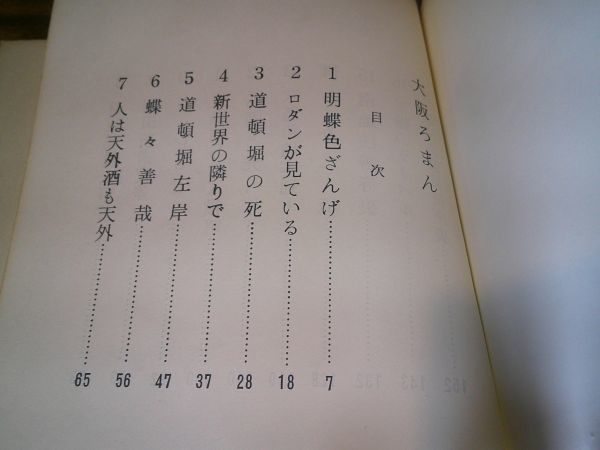 大阪ろまん
目次
1 明蝶色ざんげ……………………7
2 ロダンが見ている……………………18
3 道頓堀の死……………………28
4 新世界の隣りで……………………37
5 道頓堀左岸……………………47
6 蝶々善哉……………………56
7 人は天外酒も天外……………………65